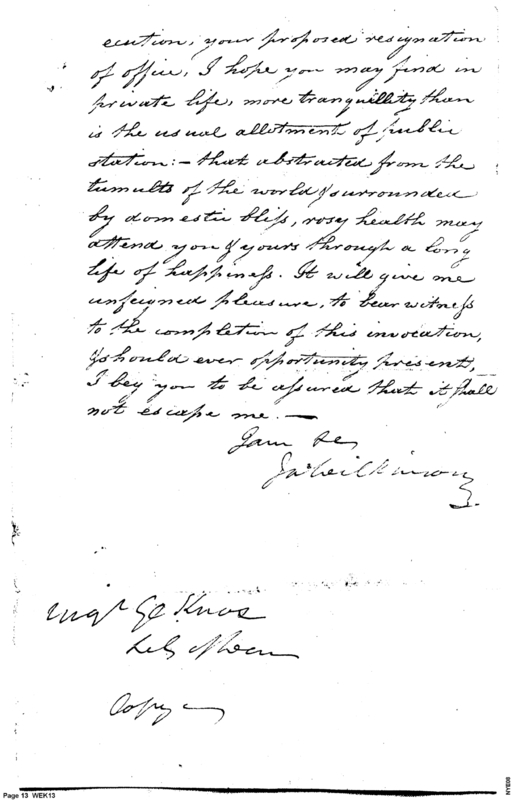 ecution, your proposed resignation
of office, I hope you may find in
private life, more tranquillity than
is the usual allotment of public
station:— that abstracted from the
tumults of the world & surrounded
by domestic bliss, rosy health may
attend you & yours through a long
life of happiness. It will give me
unfeigned pleasure, to bear witness
to the completion of this invocation,
& should ever opportunity present,
I beg you to be assured that it shall
not escape me.—
I am &c
Ja Wilkinson
Majr Gl Knox
Copy
Page 13 WEK13
NYE08